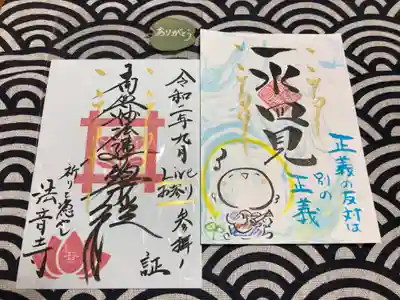 ありがとう
令和二年九月
Live
お参り
参拝ノ証
南無妙法蓮華経
法音寺
一水四見
正義の反対は
別の
正義